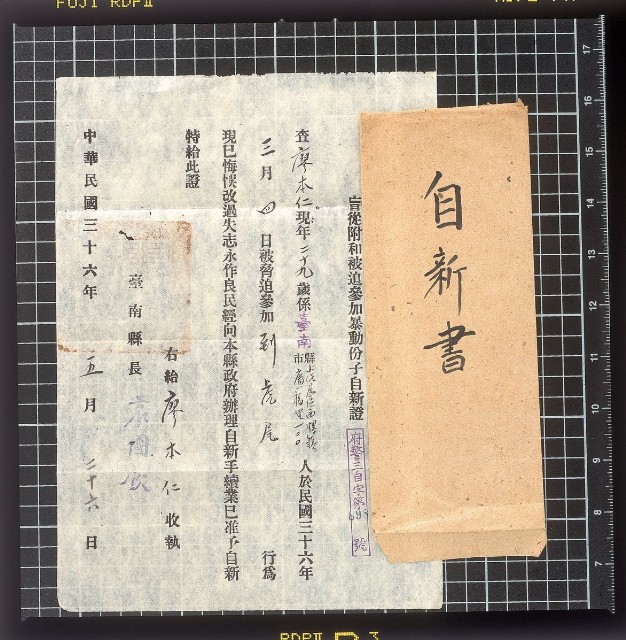 FUJI RDPII
自新書
盲從附和被迫參加暴動份子自新證
府警三自字第693號
查廖本仁現年二十九歲係臺南縣市人於民國三十六年
三月四日被脅迫參加到虎尾行為
現已悔悞改過失志永作良民經向本縣政府辦理自新手續業已准予自新
特給此證
右給廖本仁收執
臺南縣長袁國欽
中華民國三十六年五月二十六日
17
16
15
14
13
12
11
10
9
8
7
RDPII 3